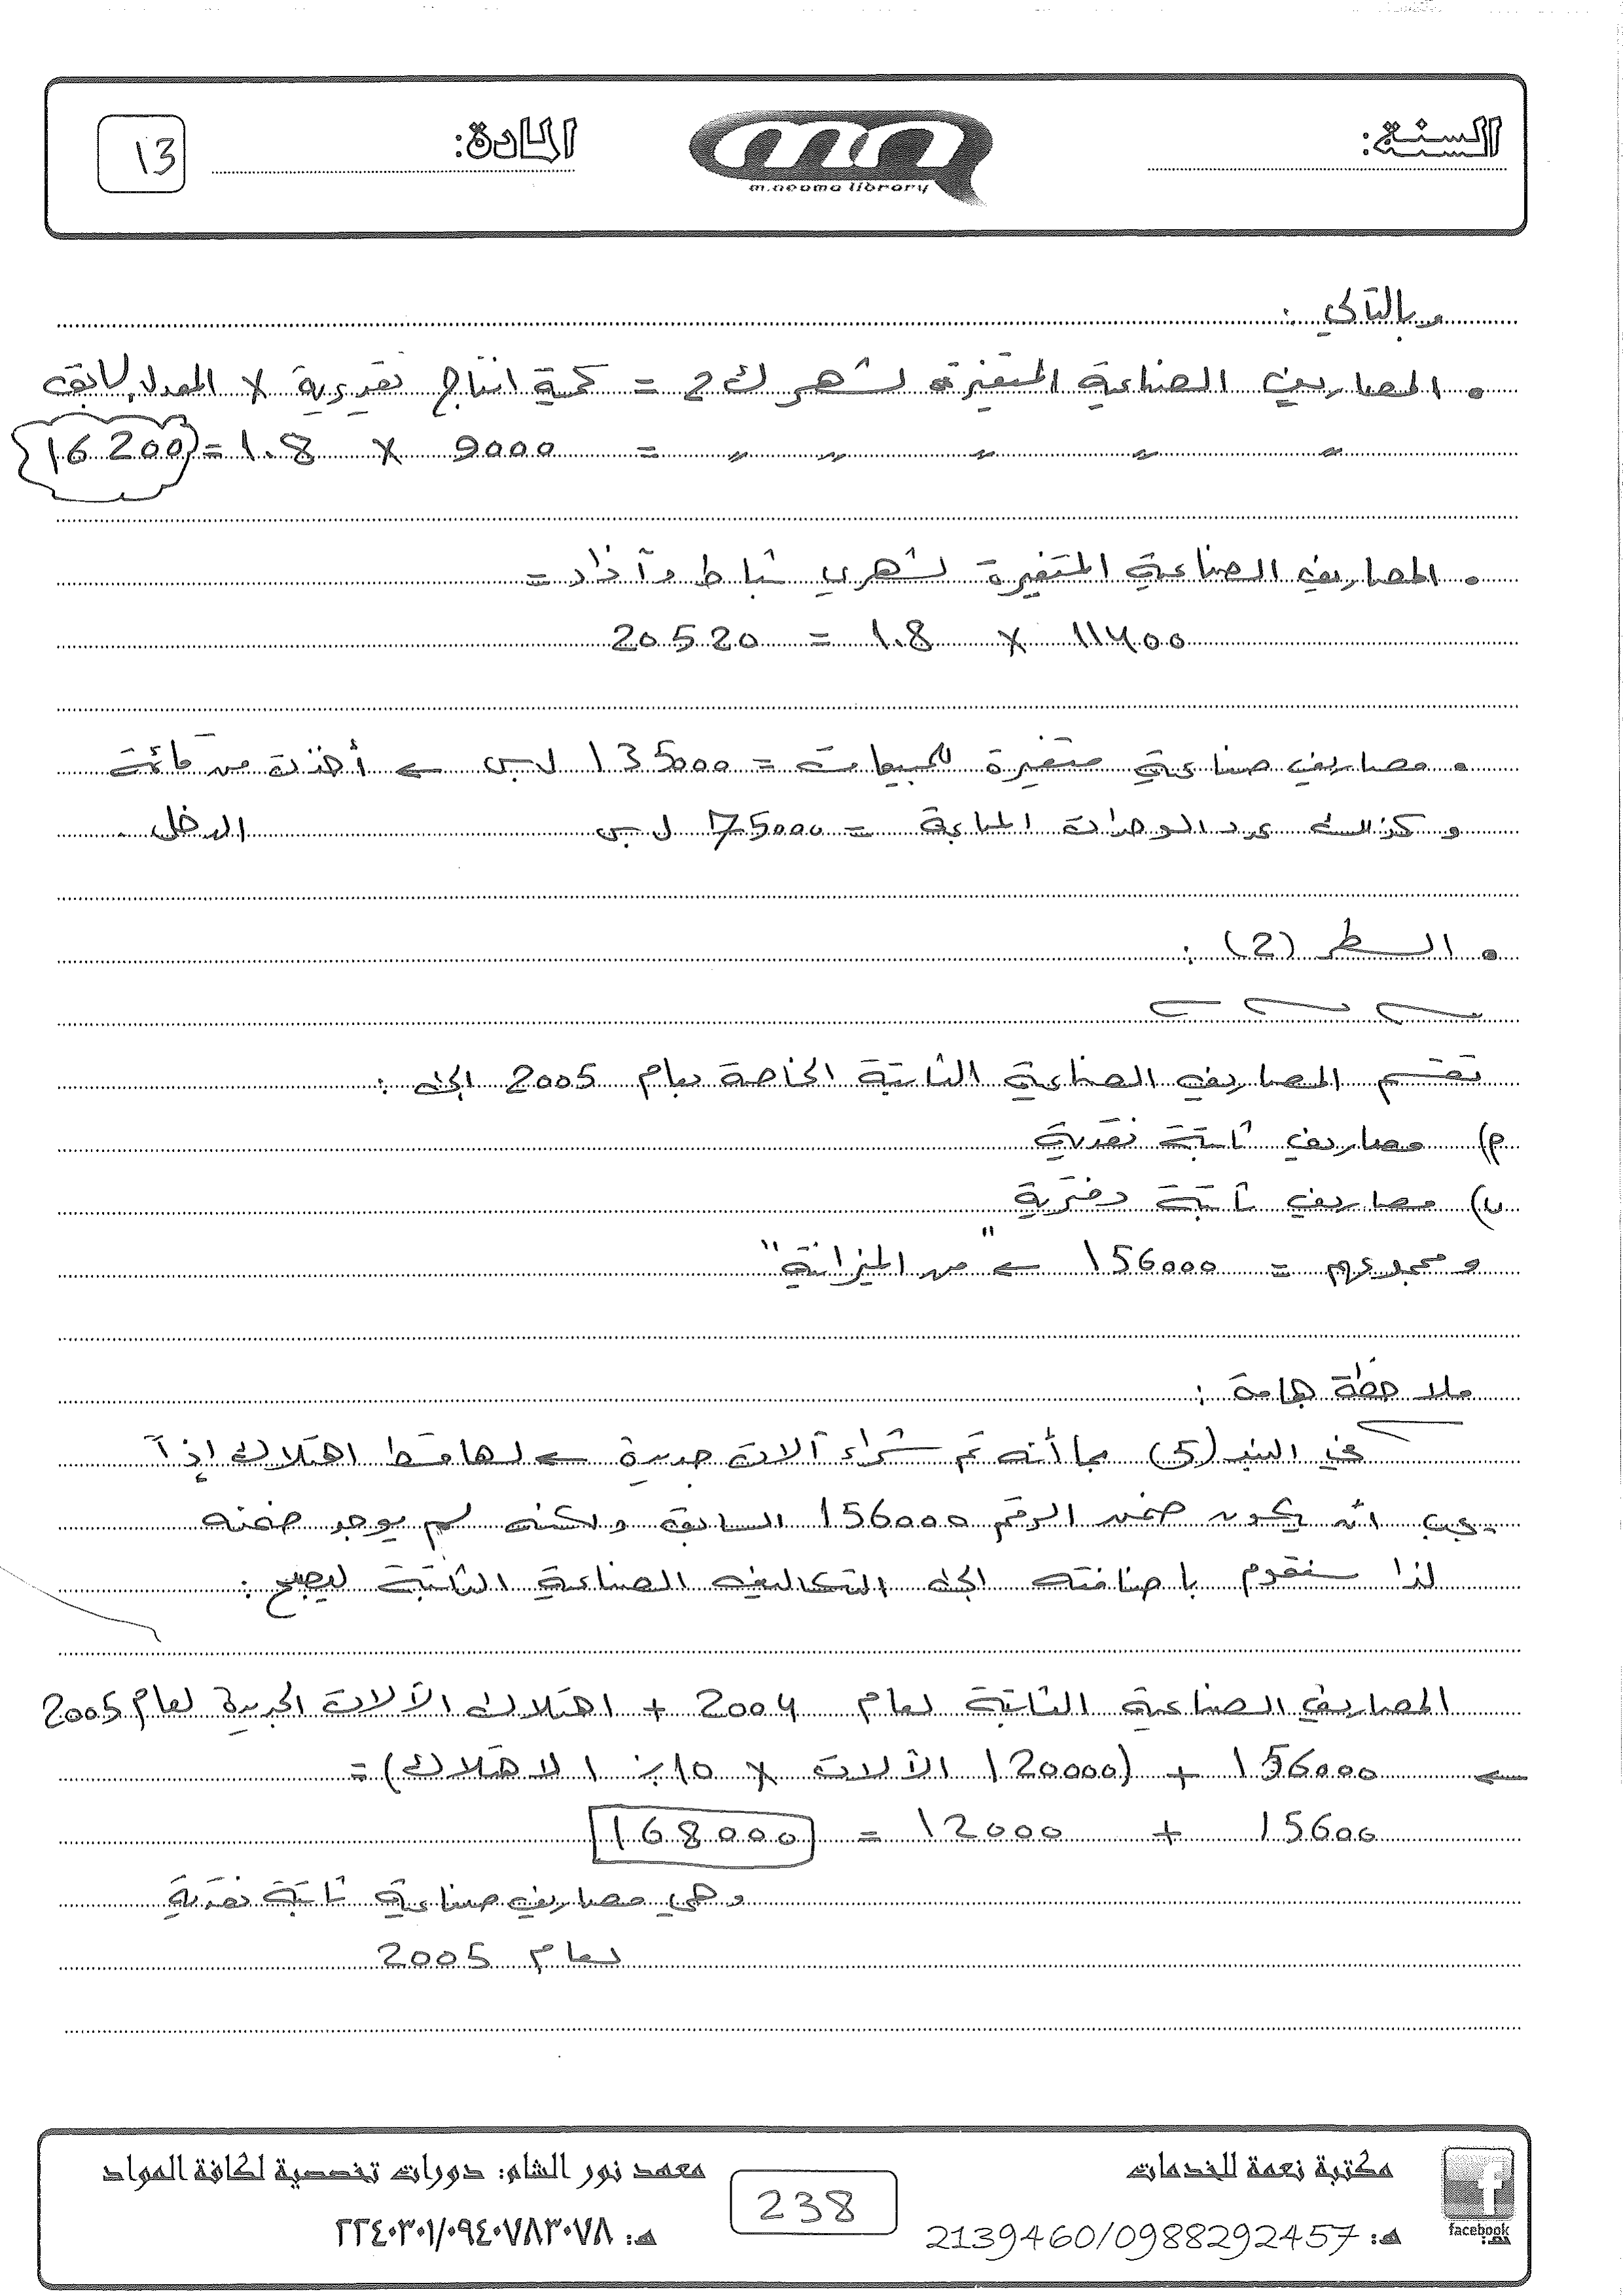 السنة:
المادة:
13
m.neoma library
وبالتالي :
• المصاريف الصناعية المتغيرة لشهر ك2 = كمية انتاج تقديرية × المعدل السابق
" " " " " = 9000 × 1.8 = 16200
• المصاريف الصناعية المتغيرة لشهري شباط وآذار =
11400 × 1.8 = 20520
• مصاريف صناعية متغيرة للمبيعات = 135000 ل.س ← أخذت من قائمة
وكذلك عدد الوحدات المباعة = 75000 ل.س الدخل.
• السطر (2) :
تقسم المصاريف الصناعية الثابتة الخاصة بعام 2005 إلى :
م) مصاريف ثابتة نقدية
ب) مصاريف ثابتة دفترية
ومجموعهم = 156000 ← "من الميزانية"
ملاحظة هامة :
في البند (5) بما أنه تم شراء آلات جديدة ← لها قسط اهتلاك إذاً
يجب انه يكون ضمن الرقم 156000 السابق ولكنه لم يوجد ضمنه
لذا سنقوم باضافته إلى التكاليف الصناعية الثابتة ليصبح :
المصاريف الصناعية الثابتة لعام 2004 + اهتلاك الآلات الجديدة لعام 2005
← 156000 + (120000 الآلات × 10٪ الاهتلاك) =
15600 + 12000 = 168000
وهي مصاريف صناعية ثابتة نقدية
لعام 2005
مكتبة نعمة للخدمات
هـ: 2139460/0988292457
facebook
238
معهد نور الشام: دورات تخصصية لكافة المواد
هـ: ٢٢٤٠٣٠١/٠٩٤٠٧٨٣٠٧٨